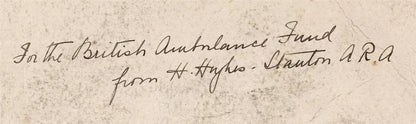 For the British Ambulance Fund
from H. Hughes-Stanton A.R.A